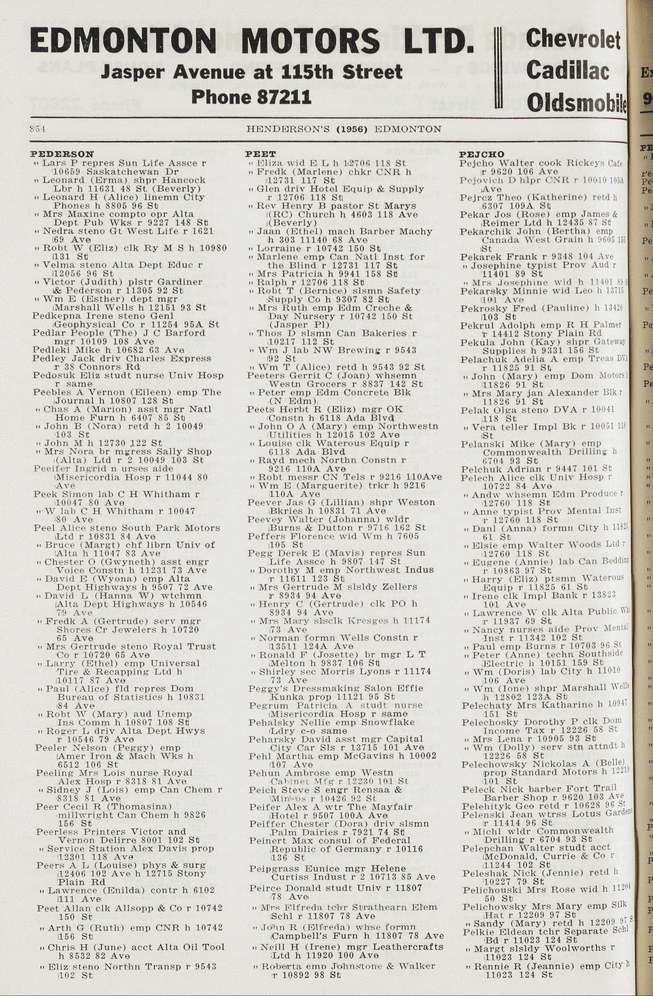 EDMONTON MOTORS LTD.
Jasper Avenue at 115th Street
Phone 87211
Chevrolet
Cadillac
Oldsmobile
854
HENDERSON'S (1956) EDMONTON
PEDERSON
" Lars P repres Sun Life Assce r
10659 Saskatchewan Dr
" Leonard (Erma) shpr Hancock
Lbr h 11631 48 St (Beverly)
" Leonard H (Alice) linemn City
Phones h 8805 96 St
" Mrs Maxine compto opr Alta
Dept Pub Wks r 9227 148 St
" Nedra steno Gt West Life r 1621
69 Ave
" Robt W (Eliz) clk Ry M S h 10980
131 St
" Velma steno Alta Dept Educ r
12056 96 St
" Victor (Judith) plstr Gardiner
& Pedersen r 11305 92 St
" Wm E (Esther) dept mgr
Marshall Wells h 12151 93 St
Pedkepna Irene steno Genl
Geophysical Co r 11254 95A St
Pedlar People (The) J C Barford
mgr 10109 108 Ave
Pedleki Mike h 10682 63 Ave
Pedley Jack driv Charles Express
r 38 Connors Rd
Pedosuk Eliz studt nurse Univ Hosp
r same
Peebles A Vernon (Eileen) emp The
Journal h 10807 128 St
" Chas A (Marion) asst mgr Natl
Home Furn h 6407 85 St
" John B (Nora) retd h 2 10049
103 St
" John M h 12730 122 St
" Mrs Nora br mgress Sally Shop
(Alta) Ltd r 2 10049 103 St
Peeifer Ingrid n urses aide
Misericordia Hosp r 11044 80
Ave
Peek Simon lab C H Whitham r
10047 80 Ave
" W lab C H Whitham r 10047
80 Ave
Peel Alice steno South Park Motors
Ltd r 10831 84 Ave
" Bruce (Margt) chf librn Univ of
Alta h 11047 83 Ave
" Chester O (Gwyneth) asst engr
Voice Constn h 11231 73 Ave
" David E (Wyona) emp Alta
Dept Highways h 9507 72 Ave
" David L (Hanna W) wtchmn
Alta Dept Highways h 10546
79 Ave
" Fredk A (Gertrude) serv mgr
Shores Cr Jewelers h 10720
65 Ave
" Mrs Gertrude steno Royal Trust
Co r 10720 65 Ave
" Larry (Ethel) emp Universal
Tire & Recapping Ltd h
10117 87 Ave
" Paul (Alice) fld repres Dom
Bureau of Statistics h 10831
84 Ave
" Robt W (Mary) aud Unemp
Ins Comm h 10807 108 St
" Roger L driv Alta Dept Hwys
r 10546 79 Ave
Peeler Nelson (Peggy) emp
Amer Iron & Mach Wks h
6512 106 St
Peeling Mrs Lois nurse Royal
Alex Hosp r 8318 81 Ave
" Sidney J (Lois) emp Can Chem r
8318 81 Ave
Peer Cecil R (Thomasina)
millwright Can Chem h 9826
156 St
Peerless Printers Victor and
Vernon Delirre 8001 102 St
" Service Station Alex Davis prop
12301 118 Ave
Peers A L (Louise) phys & surg
12406 102 Ave h 12715 Stony
Plain Rd
" Lawrence (Enilda) contr h 6102
111 Ave
Peet Allan clk Allsopp & Co r 10742
150 St
" Arth G (Ruth) emp CNR h 10742
156 St
" Chris H (June) acct Alta Oil Tool
h 8532 82 Ave
" Eliz steno Northn Transp r 9543
102 St
PEET
" Eliza wid E L h 12706 118 St
" Fredk (Marlene) chkr CNR h
12731 117 St
" Glen driv Hotel Equip & Supply
r 12706 118 St
" Rev Henry B pastor St Marys
(RC) Church h 4603 118 Ave
(Beverly)
" Jaan (Ethel) mach Barber Machy
h 303 11140 68 Ave
" Lorraine r 10742 150 St
" Marlene emp Can Natl Inst for
the Blind r 12731 117 St
" Mrs Patricia h 9941 158 St
" Ralph r 12706 118 St
" Robt T (Bernice) slsmn Safety
Supply Co h 9307 82 St
" Mrs Ruth emp Edm Creche &
Day Nursery r 10742 150 St
(Jasper Pl)
" Thos D slsmn Can Bakeries r
10217 112 St
" Wm J lab NW Brewing r 9543
92 St
" Wm T (Alice) retd h 9543 92 St
Peeters Gerrit C (Joan) whsemn
Westn Grocers r 8837 142 St
" Peter emp Edm Concrete Blk
(N Edm)
Peets Herbt R (Eliz) mgr OK
Constn h 6118 Ada Blvd
" John O A (Mary) emp Northwestn
Utilities h 12015 102 Ave
" Louise clk Waterous Equip r
6118 Ada Blvd
" Rayd mech Northn Constn r
9216 110A Ave
" Robt messr CN Tels r 9216 110A Ave
" Wm E (Marguerite) trkr h 9216
110A Ave
Peever Jas G (Lillian) shpr Weston
Bkries h 10831 71 Ave
Peevey Walter (Johanna) wldr
Burns & Dutton r 9716 162 St
Peffers Florence wid Wm h 7605
105 St
Pegg Derek E (Mavis) repres Sun
Life Assce h 9807 147 St
" Dorothy M emp Northwest Indus
r 11611 123 St
" Mrs Gertrude M slsldy Zellers
r 8934 94 Ave
" Henry C (Gertrude) clk PO h
8934 94 Ave
" Mrs Mary slsclk Kresges h 11174
73 Ave
" Norman formn Wells Constn r
13511 124A Ave
" Ronald F (Josette) br mgr L T
Melton h 9837 106 St
" Shirley sec Morris Lyons r 11174
73 Ave
Peggy's Dressmaking Salon Effie
Kunka prop 11121 95 St
Pegrum Patricia A studt nurse
Misericordia Hosp r same
Pehalsky Nellie emp Snowflake
Ldry c-o same
Peharsky David asst mgr Capital
City Car Sls r 13715 101 Ave
Pehl Martha emp McGavins h 10002
107 Ave
Pehun Ambrose emp Westn
Cabinet Mfg r 12230 101 St
Peich Steve S engr Rensaa &
Minsos r 10426 92 St
Peifer Alex A wtr The Mayfair
Hotel r 9507 100A Ave
Peiffer Chester (Dora) driv slsmn
Palm Dairies r 7921 74 St
Peinert Max consul of Federal
Republic of Germany r 10116
136 St
Peipgrass Eunice mgr Helene
Curtiss Indust r 2 10713 85 Ave
Peirce Donald studt Univ r 11807
78 Ave
" Mrs Elfreda tchr Strathearn Elem
Schl r 11807 78 Ave
" John R (Elfreda) whse formn
Campbell's Furn h 11807 78 Ave
" Neill H (Irene) mgr Leathercrafts
Ltd h 11920 100 Ave
" Roberta emp Johnstone & Walker
r 10892 98 St
PEJCHO
Pejcho Walter cook Rickeys Cafe
r 9620 106 Ave
Pejovich D hlpr CNR r 10010 105A
Ave
Pejrez Theo (Katherine) retd h
6307 109A St
Pekar Jos (Rose) emp James &
Reimer Ltd h 12435 87 St
Pekarchik John (Bertha) emp
Canada West Grain h 9605
St
Pekarek Frank r 9348 104 Ave
" Josephine typist Prov Aud r
11401 89 St
" Mrs Josephine wid h 11401
Pekarsky Minnie wid Leo h 13715
101 Ave
Pekrosky Fred (Pauline) h 13426
103 St
Pekrul Adolph emp R H Palmer
r 14412 Stony Plain Rd
Pekula John (Kay) shpr Gateway
Supplies h 9331 156 St
Pelachuk Adelia A emp Treas
r 11825 91 St
" John (Mary) emp Dom Motors
11826 91 St
" Mrs Mary jan Alexander Blk r
11826 91 St
Pelak Olga steno DVA r 10041
118 St
" Vera teller Impl Bk r 10051
St
Pelanski Mike (Mary) emp
Commonwealth Drilling h
6704 93 St
Pelchuk Adrian r 9447 101 St
Pelech Alice clk Univ Hosp r
10722 84 Ave
" Andw whsemn Edm Produce r
12760 118 St
" Anne typist Prov Mental Inst
r 12760 118 St
" Danl (Anna) formn City h
61 St
" Elsie emp Walter Woods Ltd r
12760 118 St
" Eugene (Annie) lab Can Bedding
r 10863 97 St
" Harry (Eliz) ptsmn Waterous
Equip r 11825 61 St
" Irene clk Impl Bank r 13823
101 Ave
" Lawrence W clk Alta Public
r 11937 69 St
" Nancy nurses aide Prov Mental
Inst r 11342 102 St
" Paul emp Burns r 10703 96 St
" Peter (Anne) techn Southside
Electric h 10151 159 St
" Wm (Doris) lab City h 11010
106 Ave
" Wm (Ione) shpr Marshall Wells
h 12802 123A St
Pelechaty Mrs Katharine h 10947
151 St
Pelechosky Dorothy P clk Dom
Income Tax r 12226 58 St
" Mrs Lena r 10905 93 St
" Wm (Dolly) serv stn attndt h
12226 58 St
Pelechowsky Nickolas A (Belle)
prop Standard Motors h
101 St
Peleck Nick barber Fort Trail
Barber Shop r 9620 103 Ave
Pelehityk Geo retd r 10628 96 St
Pelenski Jean wtrss Lotus Gardens
r 11414 96 St
" Michl wldr Commonwealth
Drilling r 6704 93 St
Pelepchan Walter studt acct
McDonald, Currie & Co r
11244 102 St
Peleshak Nick (Jennie) retd h
10227 79 St
Pelichouski Mrs Rose wid h
50 St
Pelichowsky Mrs Mary emp Silk
Hat r 12209 97 St
" Sandy (Mary) retd h 12209 97
Pelkie Eldean tchr Separate Schl
Bd r 11023 124 St
" Margt slsldy Woolworths r
11023 124 St
" Rennie R (Jeannie) emp City h
11023 124 St